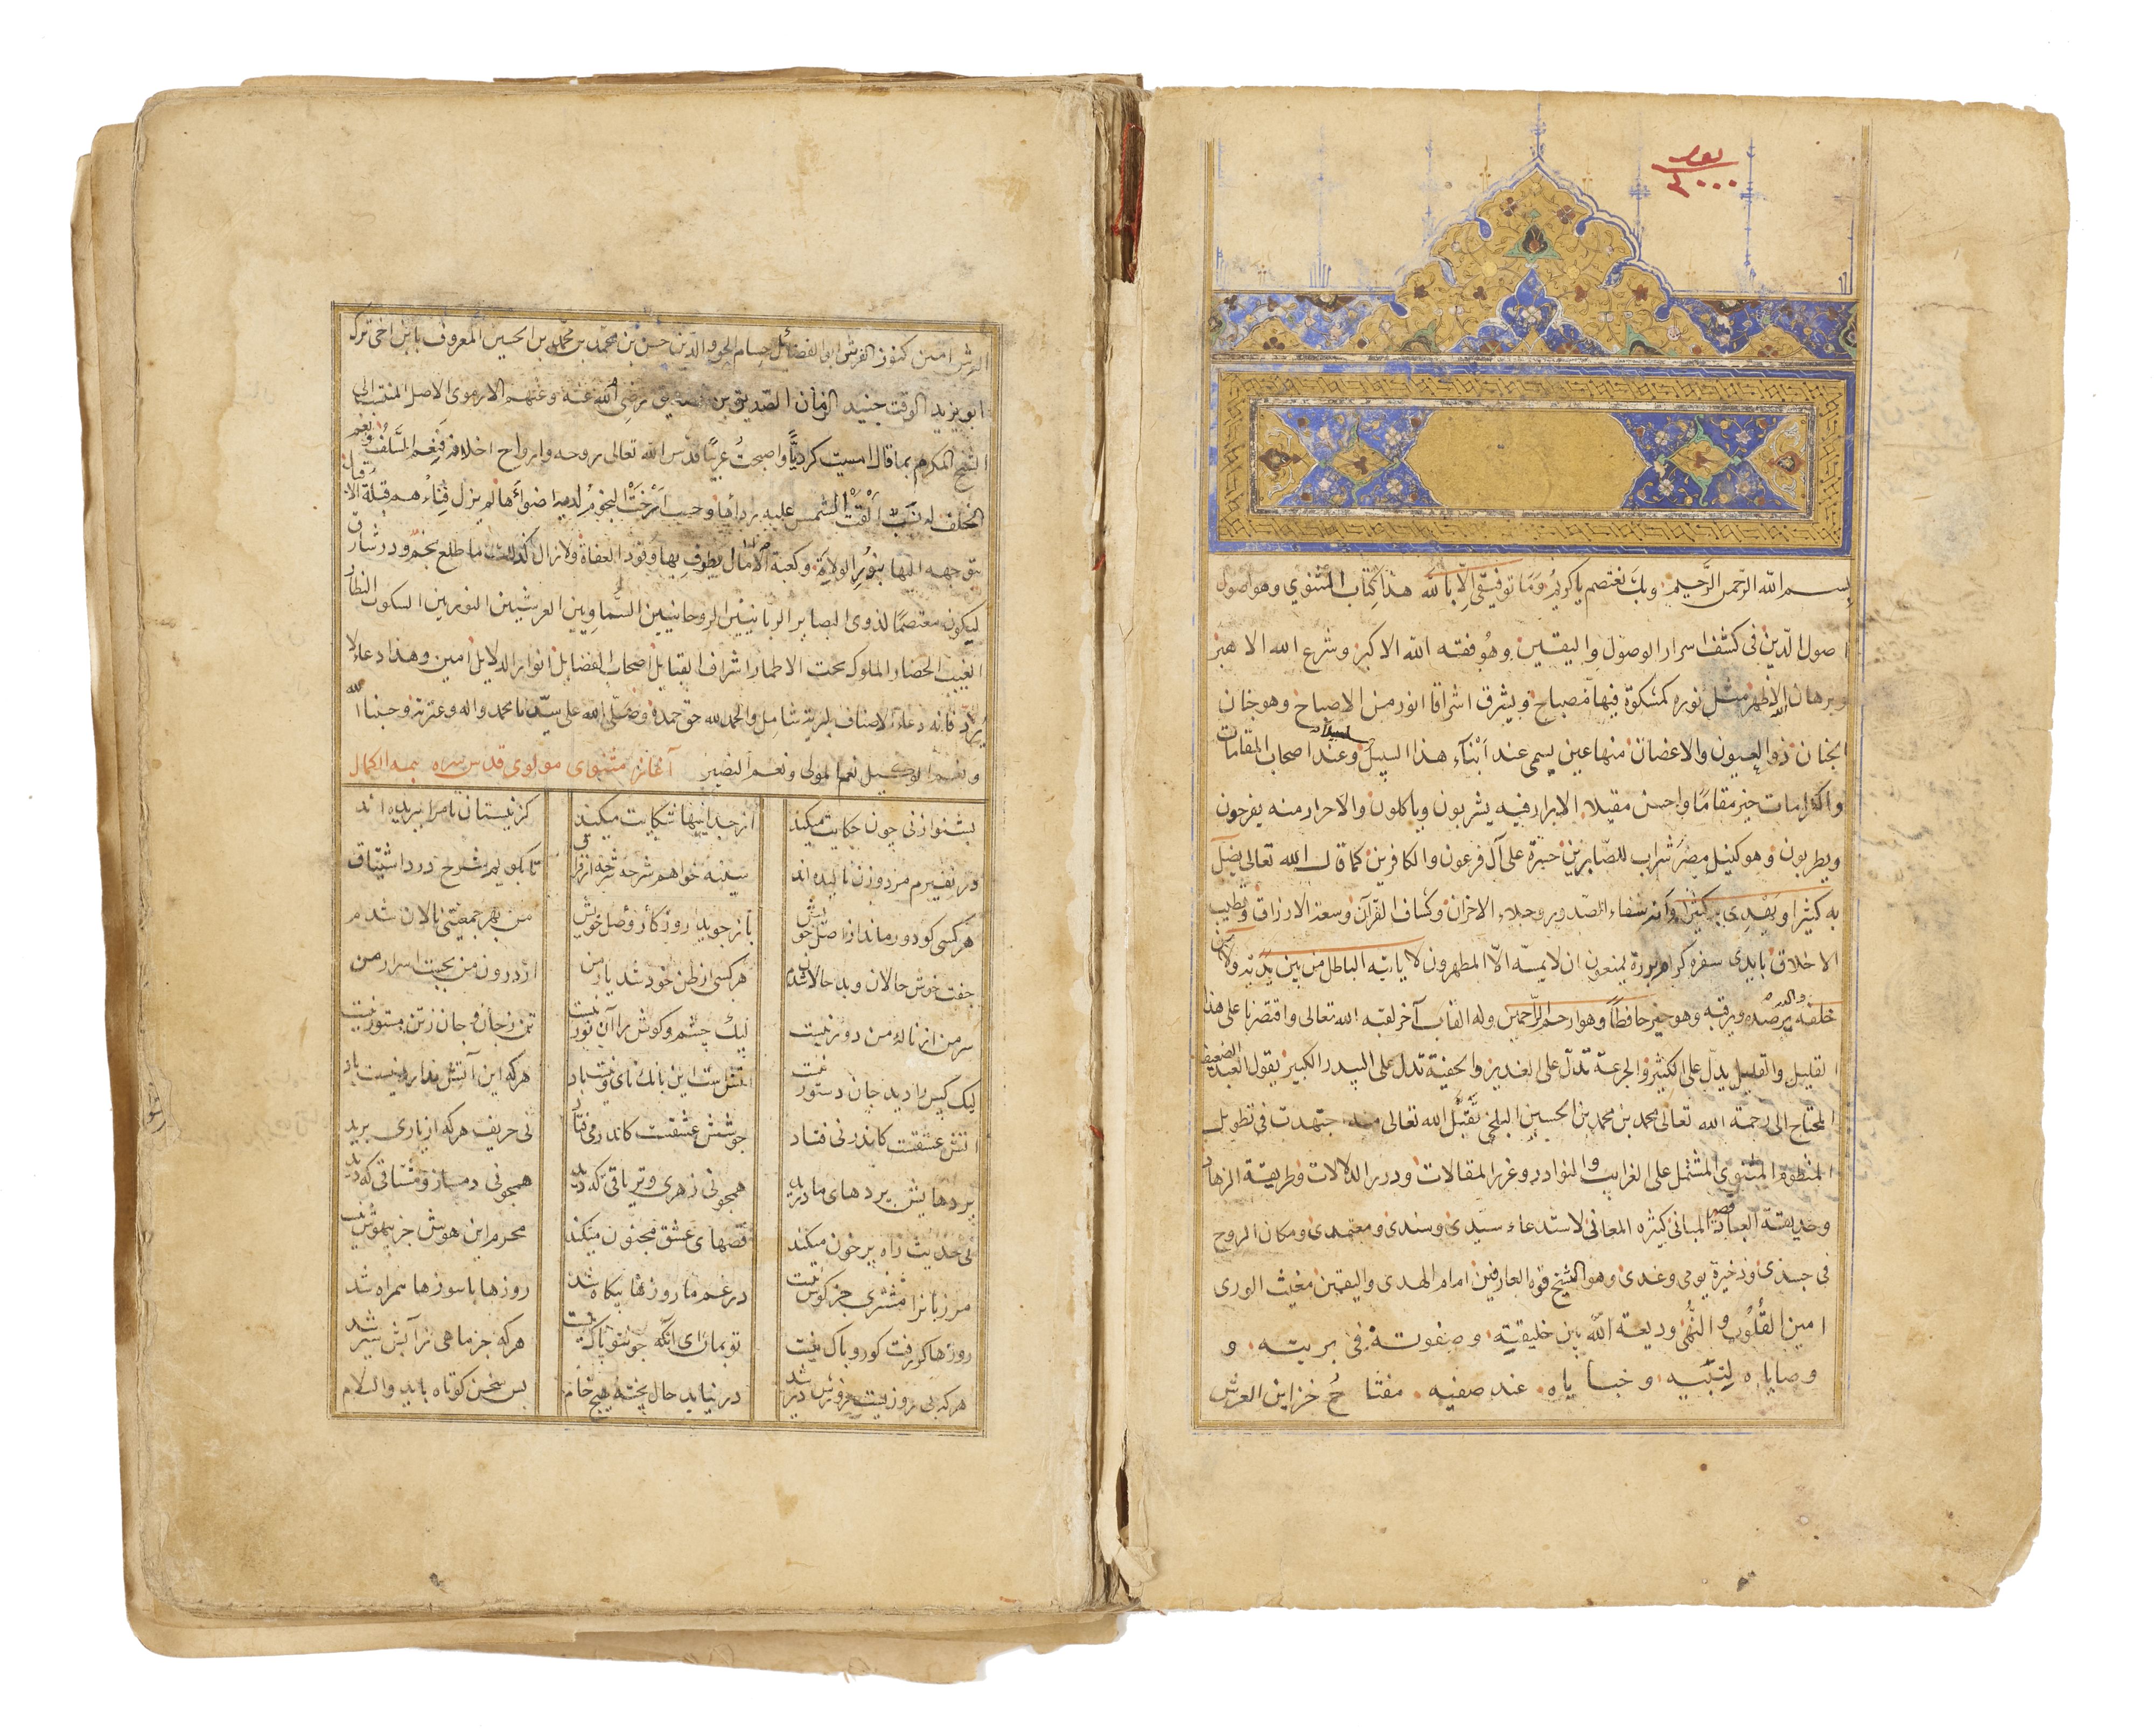 بعدد
۳۰۰۰
بسم الله الرحمن الرحيم وبك نعتصم يا كريم وما توفيقى الا بالله هذا كتاب المثنوي وهو اصول
اصول الدين فى كشف اسرار الوصول واليقين وهو فقه الله الاكبر وشرع الله الازهر
وبرهان الله الاظهر مثل نوره كمشكوة فيها مصباح ويشرق اشراقا انور من الاصباح وهو جنان
الجنان ذو العيون والاغصان منها عين يسمى عند ابناء هذا السبيل سلسبيلا وعند اصحاب المقامات
والكرامات خير مقاما واحسن مقيلا الابرار فيه يشربون وياكلون والاحرار منه يفرحون
ويطربون وهو كنيل مصر شراب للصابرين حسرة على آل فرعون والكافرين كما قال الله تعالى يضل
به كثيرا ويهدى به كثيرا وانه شفاء الصدور وجلاء الاحزان وكشاف القرآن وسعة الارزاق وتطيب
الاخلاق بايدى سفره كرام بررة يمنعون ان لا يمسه الا المطهرون لا ياتيه الباطل من بين يديه ولا من
خلفه والله يرصده ويرقبه وهو خير حافظا وهو ارحم الراحمين وله القاب آخر لقبه الله تعالى واقتصرنا على هذا
القليل والقليل يدل على الكثير والجرعة تدل على الغدير والحفنة تدل على البيدر الكبير يقول العبد الضعيف
المحتاج الى رحمة الله تعالى محمد بن محمد بن الحسين البلخى تقبل الله تعالى منه اجتهدت فى تطويل
المنظوم المثنوى المشتمل على الغرايب والنوادر وغرر المقالات ودرر الدلالات وطريقة الزهاد
وحديقة العباد قصيرة المبانى كثيره المعانى لاستدعاء سيدى وسندى ومعتمدى ومكان الروح
فى جسدى وذخيرة يومى وغدى وهو الشيخ قدوة العارفين امام الهدى واليقين مغيث الورى
امين القلوب والنهى وديعة الله بين خليقته وصفوته فى بريته و
وصاياه لنبيه وخباياه عند صفيه مفتاح خزاين العرش
امين كنوز الفرش ابو الفضائل حسام الحق والدين حسن بن محمد بن محمد بن الحسين المعروف بابن اخى ترك
ابو يزيد الوقت جنيد الزمان الصديق بن رضى الله عنه وعنهم الارموى الاصل المنتسب الى
الشيخ المكرم بما قال امسيت كرديا واصبحت عربيا قدس الله تعالى روحه وارواح اخلافه فنعم السلف ونعم
الخلف له نسب القت الشمس عليه رداءها وحسب ارخت النجوم لديه اضواءها لم يزل فناءهم قبلة الاقبال
يتوجه اليها بنو الولاة وكعبة الآمال يطوف بها وفود العفاة ولا زال كذلك ما طلع نجم وذر شارق
ليكون معتصما لذوى البصاير الربانيين الروحانيين السماويين العرشيين النوريين السكوت النظار
الغيب الحضار الملوك تحت الاطمار اشراف القبايل اصحاب الفضايل انوار الدلايل آمين وهذا دعاء لا
يرد فانه دعاء لاصناف البرية شامل والحمد لله حق حمده وصلى الله على سيدنا محمد واله وعترته وحسبنا الله
ونعم الوكيل نعم المولى ونعم النصير آغاز مثنوى مولوى قدس سره بمنه الكمال
بشنو از نى چون حكايت ميكند از جداييها شكايت ميكند كز نيستان تا مرا ببريده اند
در نفيرم مرد و زن ناليده اند سينه خواهم شرحه شرحه از فراق تا بگويم شرح درد اشتياق
هر كسى كو دور ماند از اصل خويش باز جويد روزگار وصل خويش من بهر جمعيتى نالان شدم
جفت خوش حالان و بد حالان شدم هر كسى از ظن خود شد يار من از درون من نجست اسرار من
سر من از ناله من دور نيست ليك چشم و گوش را آن نور نيست تن ز جان و جان ز تن مستور نيست
ليك كس را ديد جان دستور نيست آتش است اين بانگ ناى و نيست باد هر كه اين آتش ندارد نيست باد
آتش عشقست كاندر نى فتاد جوشش عشقست كاندر مى فتاد نى حريف هر كه از يارى بريد
پردهايش پردهاى ما دريد همچو نى زهرى و ترياقى كه ديد همچو نى دمساز و مشتاقى كه ديد
نى حديث راه پر خون ميكند قصهاى عشق مجنون ميكند محرم اين هوش جز بيهوش نيست
مر زبانرا مشترى جز گوش نيست در غم ما روزها بيگاه شد روزها با سوزها همراه شد
روزها گر رفت گو رو باك نيست تو بمان اى آنكه چون تو پاك نيست هر كه جز ماهى ز آبش سير شد
هر كه بى روزيست روزش دير شد در نيابد حال پخته هيچ خام بس سخن كوتاه بايد والسلام